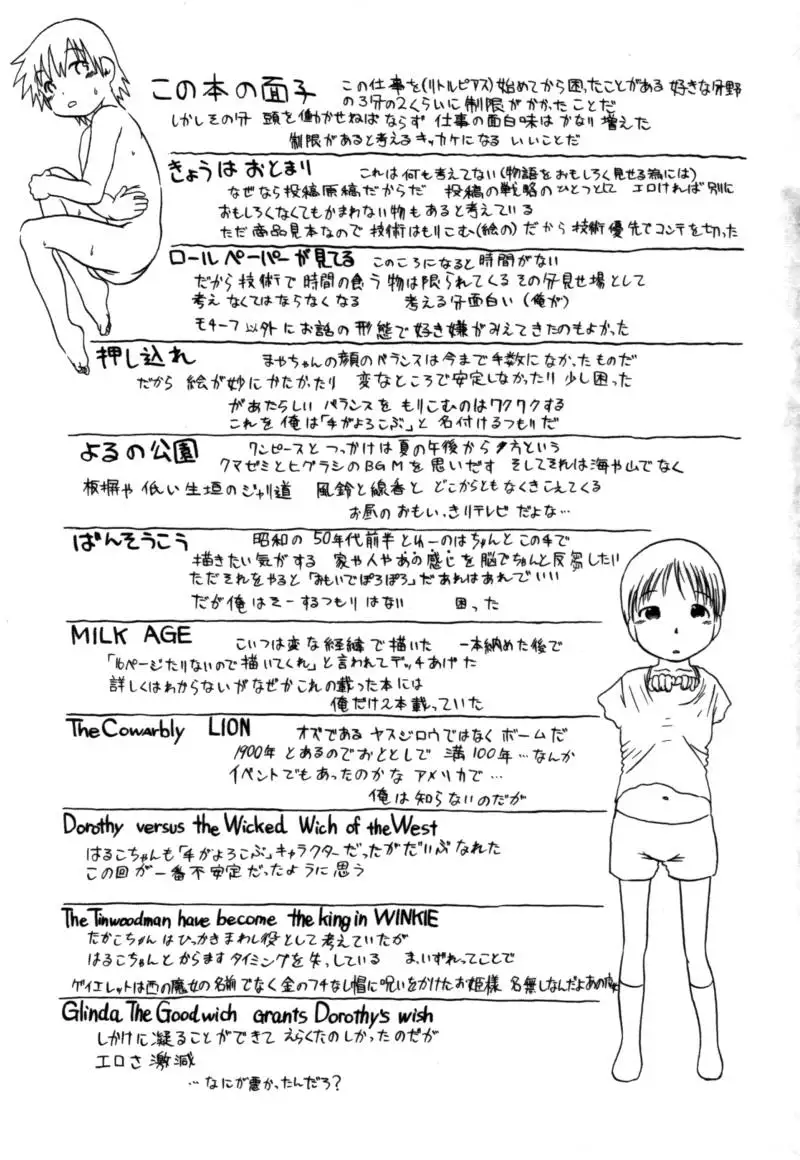 この本の面子 この仕事を(リトルピアス)始めてから困ったことがある 好きな分野
の3分の2くらいに制限がかかったことだ
しかしその分 頭を働かせねばならず 仕事の面白味はかなり増えた
制限があると考えるキッカケになる いいことだ
きょうはおとまり これは何も考えてない(物語をおもしろく見せる為には)
なぜなら投稿原稿だからだ 投稿の戦略のひとつとして エロければ別に
おもしろくなくてもかまわない物もあると考えている
ただ商品見本なので技術はもりこむ(絵の)だから技術優先でコンテを切った
ロールペーパーが見てる このころになると時間がない
だから技術で時間の食う物は限られてくる その分見せ場として
考えなくてはならなくなる 考える分面白い(俺が)
モチーフ以外にお話の形態で好き嫌がみえてきたのもよかった
押し込れ まやちゃんの顔のバランスは今まで手数になかったものだ
だから 絵が妙にかたかったり 変なところで安定しなかったり 少し困った
があたらしい バランスを もりこむのはワクワクする
これを俺は「手がよろこぶ」と名付けるつもりだ
よるの公園 ワンピースとつっかけは夏の午後から夕方という
クマゼミとヒグラシのBGMを思いだす そしてそれは海や山でなく
板塀や低い生垣のジャリ道 風鈴と線香と どこからともなくきこえてくる
お昼のおもいっきりテレビだよな…
ばんそうこう 昭和の50年代前半とゆーのはちゃんとこの手で
描きたい気がする 家や人やあの感じを脳でちゃんと反芻したい
ただそれをやると「おもいでぽろぽろ」だ あれはあれでいい
だが俺はそーするつもりはない 困った
MILK AGE こいつは変な経緯で描いた 一本納めた後で
「16ページたりないので描いてくれ」と言われてデッチあげた
詳しくはわからないがなぜかこれの載った本には
俺だけ2本載っていた
The Cowarbly LION オズである ヤスジロウではなくボームだ
1900年とあるのでおととしで 満100年…なんか
イベントでもあったのかな アメリカで…
俺は知らないのだが
Dorothy versus the Wicked Wich of the West
はるこちゃんも「手がよろこぶ」キャラクターだったがだいぶなれた
この回が一番不安定だったように思う
The Tinwoodman have become the king in WINKIE
たかこちゃんはひっかきまわし役として考えていたが
はるこちゃんとからますタイミングを失っしている まぁいずれってことで
ゲイエレットは西の魔女の名前でなく金のフチなし帽に呪いをかけたお姫様 名無しなんだよあの
Glinda The Goodwich grants Dorothy's wish
しかけに凝ることができて えらくたのしかったのだが
エロさ激減
…なにが悪かったんだろ?